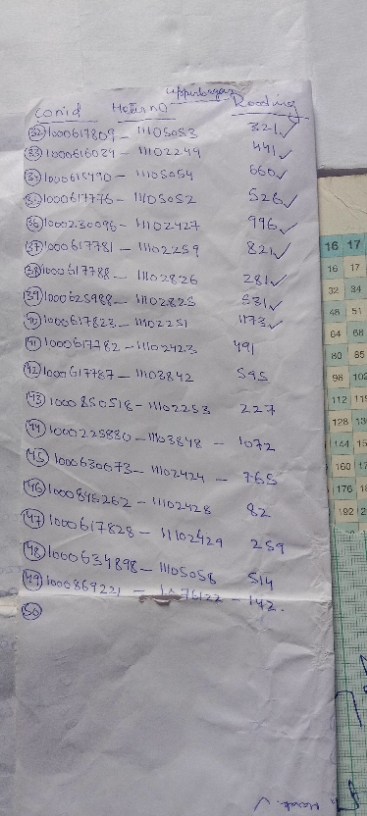 Con.id Meter no Reading
(32) 1000617809 - 11105053 321 ✓
(33) 1000616029 - 11102249 441 ✓
(34) 1000615470 - 11105054 660 ✓
(35) 1000617776 - 11105052 526 ✓
(36) 1000230096 - 11102427 996 ✓
(37) 1000617781 - 11102259 821 ✓
(38) 1000617788 - 11102826 281 ✓
(39) 1000625988 - 11102825 531 ✓
(40) 1000617823 - 11102251 1173 ✓
(41) 1000617782 - 11102423 491
(42) 1000617787 - 11103842 595
(43) 1000850518 - 11102253 227
(44) 1000225880 - 11103848 - 1072
(45) 1000630673 - 11102424 - 765
(46) 1000845262 - 11102428 82
(47) 1000617828 - 11102429 259
(48) 1000634898 - 11105058 514
(49) 1000869221 - 142.
(50)
16 17
16 17
32 34
48 51
64 68
80 85
98 102
112 119
128
144
160
176
192